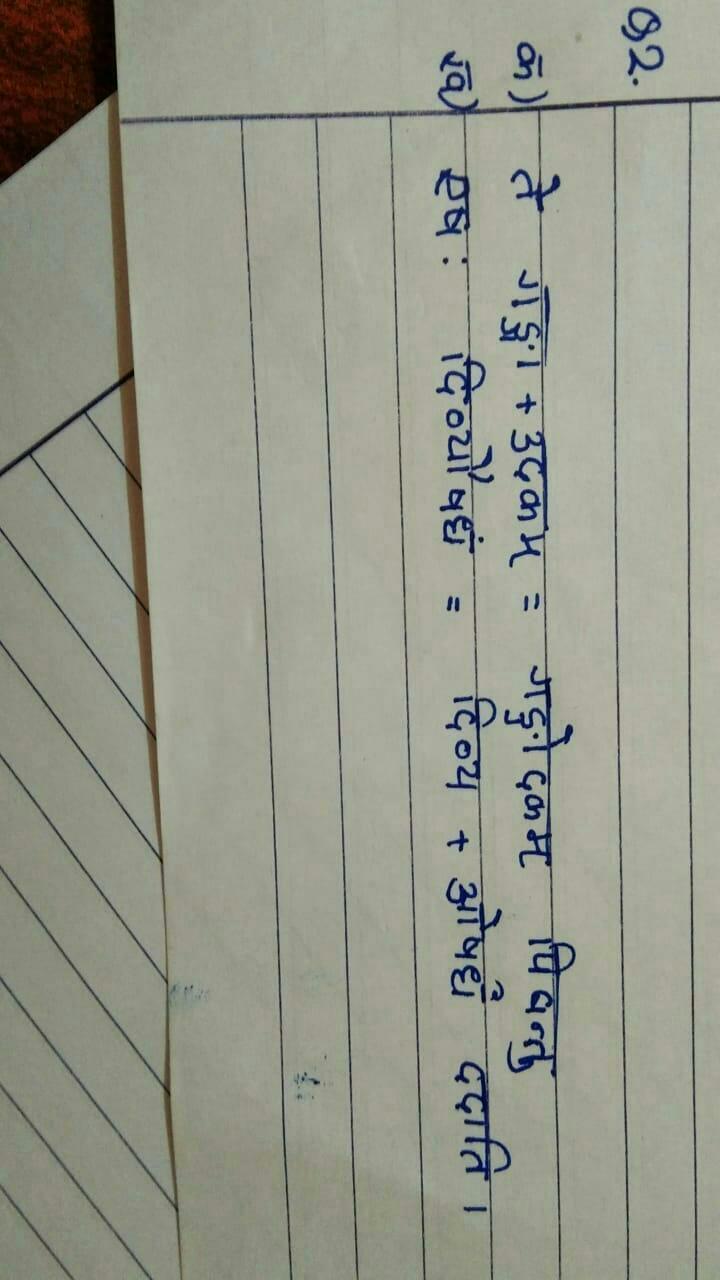 Q2.
क) ते गङ्गा + उदकम = गङ्गोदकम पिबन्तु
ख) एष: दिव्यौषधं = दिव्य + औषधं ददाति ।